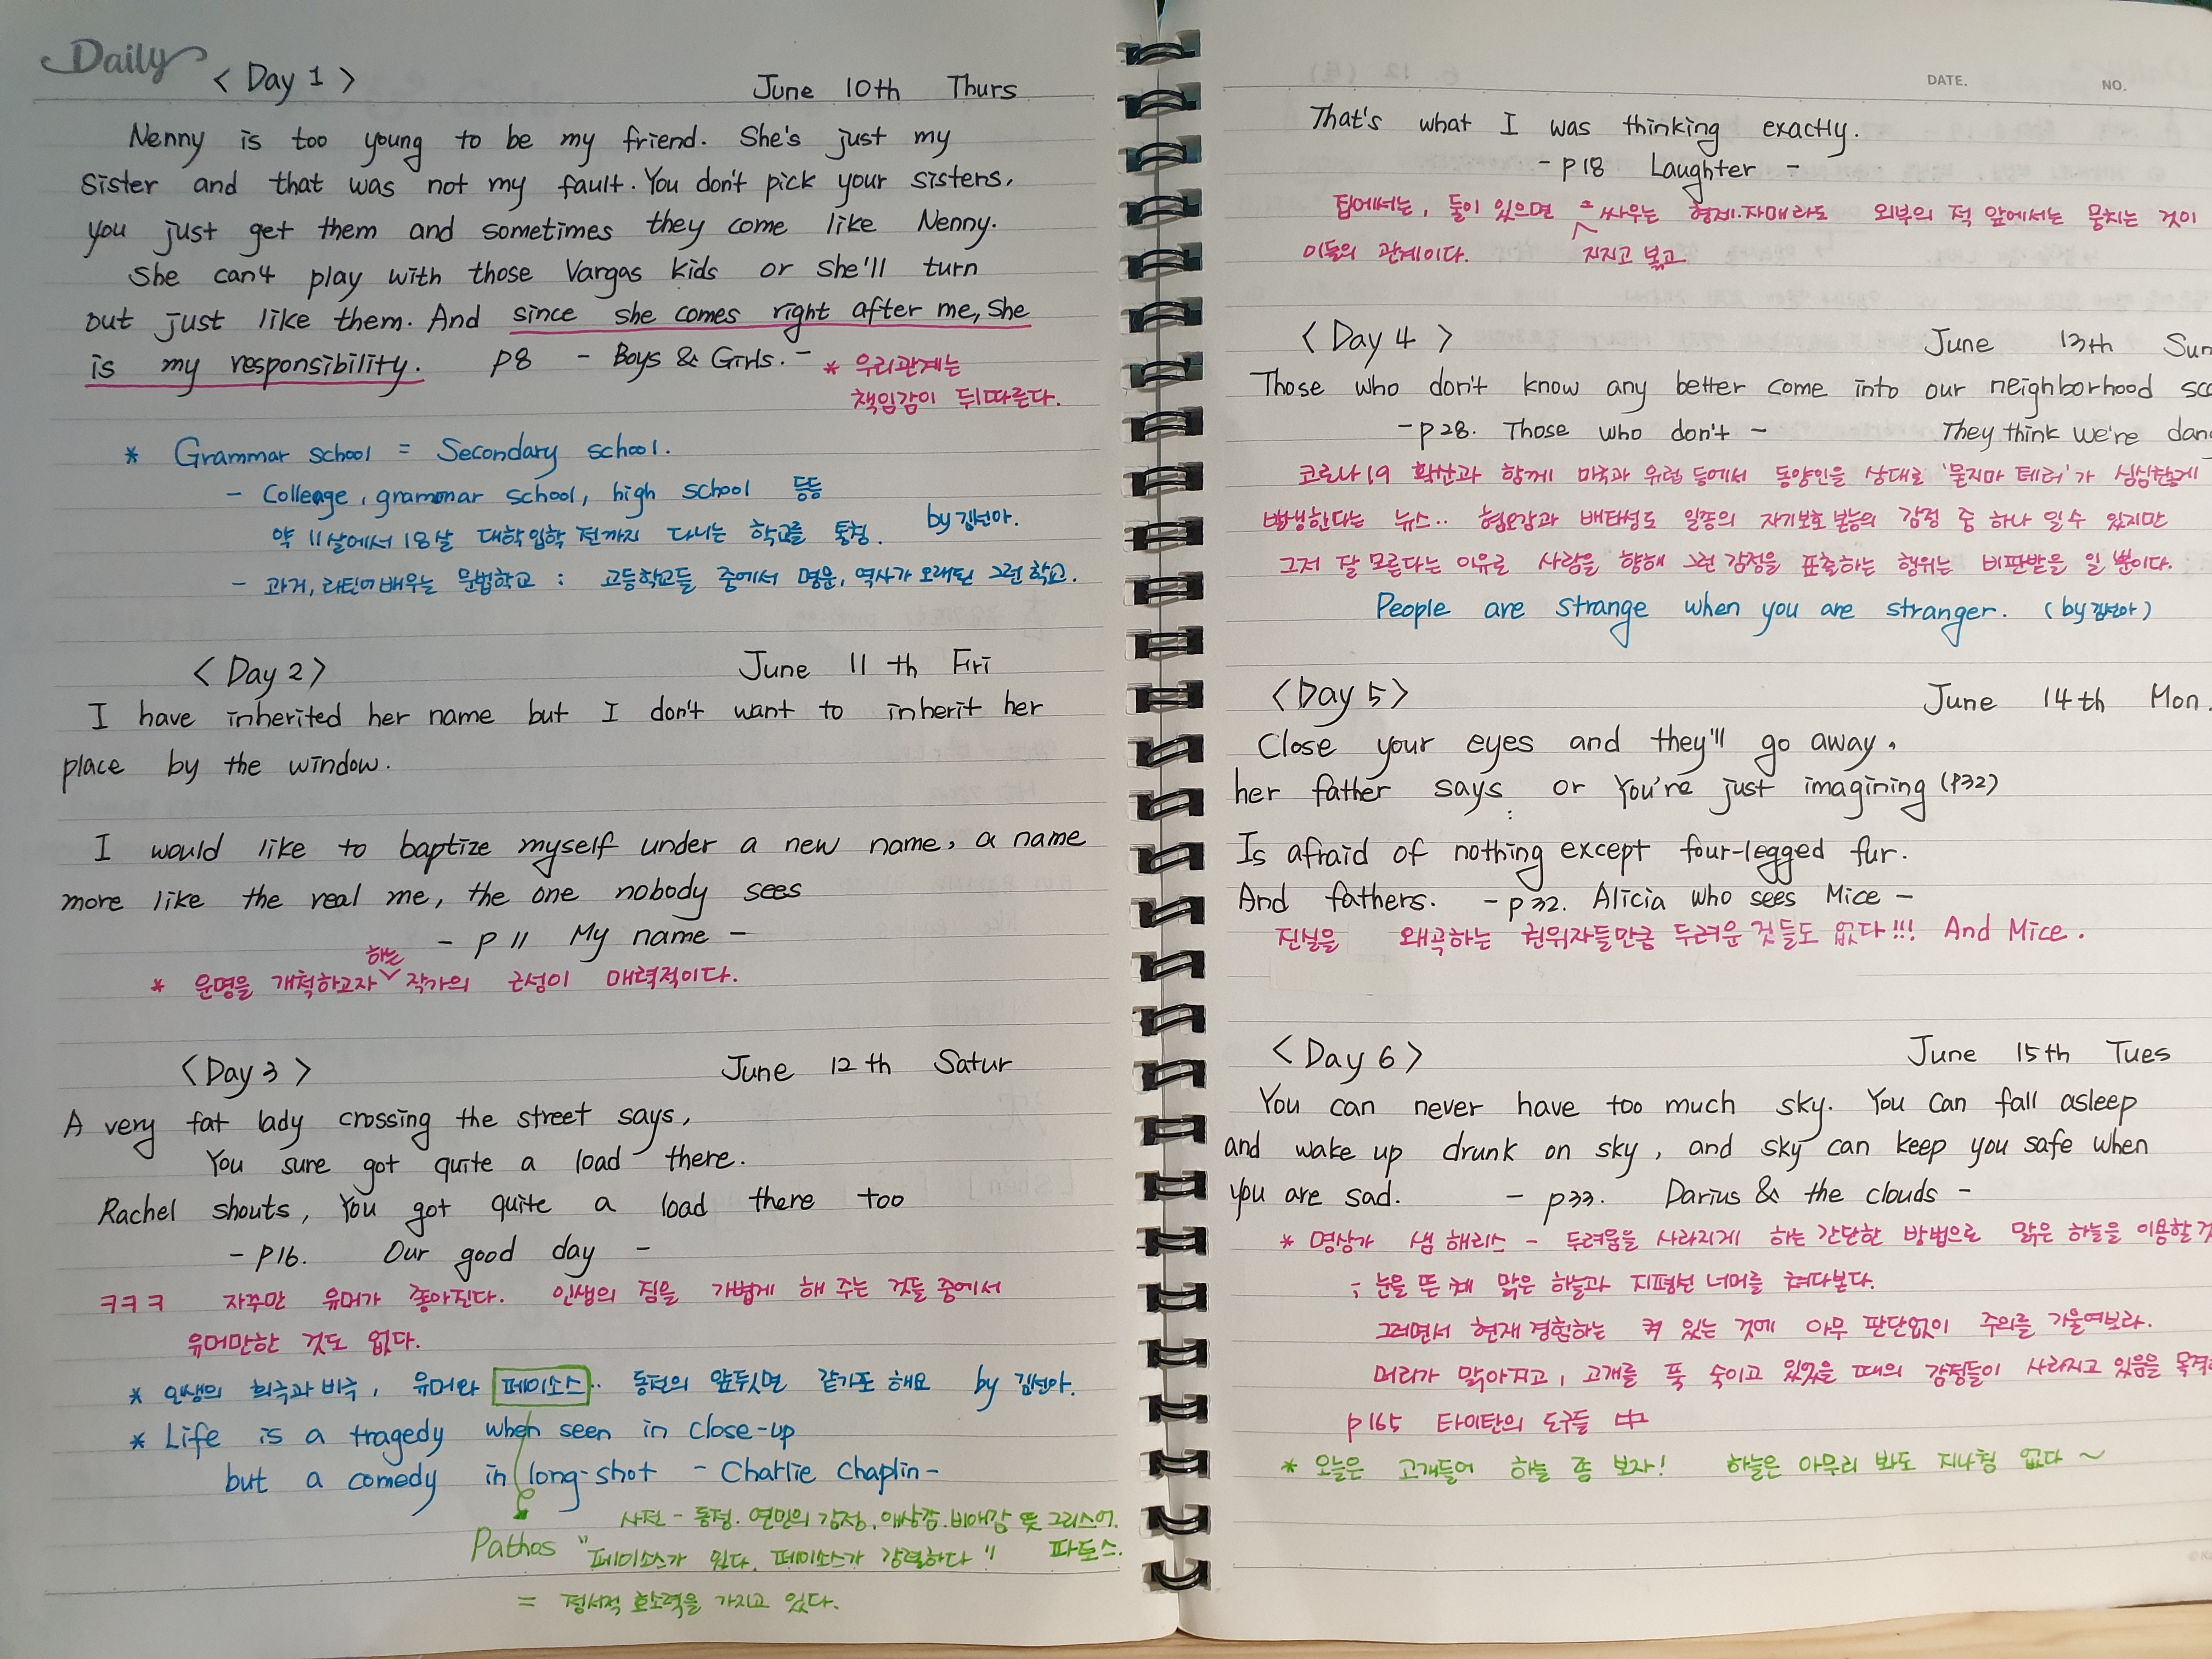 Daily
< Day 1 > June 10th Thurs
Nenny is too young to be my friend. She's just my
sister and that was not my fault. You don't pick your sisters,
you just get them and sometimes they come like Nenny.
She can't play with those Vargas kids or she'll turn
out just like them. And since she comes right after me, she
is my responsibility. p8 - Boys & Girls. -
* 우리관계는
책임감이 뒤따른다.
* Grammar school = Secondary school.
- Colleage, grammar school, high school 등등
약 11살에서 18살 대학입학 전까지 다니는 학교를 통칭. by 김선아.
- 과거, 라틴어배우는 문법학교 : 고등학교들 중에서 명문, 역사가 오래된 그런 학교.
< Day 2 > June 11 th Firi
I have inherited her name but I don't want to inherit her
place by the window.
I would like to baptize myself under a new name, a name
more like the real me, the one nobody sees
- p 11 My name -
하는
* 운명을 개척하고자 작가의 근성이 매력적이다.
< Day 3 > June 12 th Satur
A very fat lady crossing the street says,
You sure got quite a load there.
Rachel shouts, You got quite a load there too
- p16. Our good day -
ㅋㅋㅋ 자꾸만 유머가 좋아진다. 인생의 짐을 가볍게 해 주는 것들 중에서
유머만한 것도 없다.
* 인생의 희극과 비극, 유머와 페이소스.. 동전의 앞뒷면 같기도 해요 by 김선아.
* Life is a tragedy when seen in close-up
but a comedy in long-shot - Charlie Chaplin -
사전 - 동정. 연민의 감정, 애상감. 비애감 뜻 그리스어.
Pathos "페이소스가 있다. 페이소스가 강렬하다" 파토스.
= 정서적 호소력을 가지고 있다.
DATE. NO.
That's what I was thinking exactly.
- p18 Laughter -
집에서는, 둘이 있으면 싸우는 형제.자매라도 외부의 적 앞에서는 뭉치는 것이
이들의 관계이다. 지지고 볶고
< Day 4 > June 13th Sun
Those who don't know any better come into our neighborhood
- p28. Those who don't - They think we're
코로나19 확산과 함께 미국과 유럽 등에서 동양인을 상대로 '묻지마 테러'가 심심찮게
발생한다는 뉴스.. 혐오감과 배타성도 일종의 자기보호 본능의 감정 중 하나 일 수 있지만
그저 잘 모른다는 이유로 사람을 향해 그런 감정을 표출하는 행위는 비판받을 일 뿐이다.
People are strange when you are stranger. (by 김선아)
< Day 5 > June 14th Mon.
Close your eyes and they'll go away.
her father says or You're just imagining (p32)
Is afraid of nothing except four-legged fur.
And fathers. - p32. Alicia who sees Mice -
진실을 왜곡하는 권위자들만큼 두려운 것들도 없다!!! And Mice.
< Day 6 > June 15th Tues
You can never have too much sky. You can fall asleep
and wake up drunk on sky, and sky can keep you safe when
you are sad. - p33. Darius & the clouds -
* 명상가 샘 해리스 - 두려움을 사라지게 하는 간단한 방법으로 맑은 하늘을 이용할
; 눈을 뜬 채 맑은 하늘과 지평선 너머를 쳐다본다.
그러면서 현재 경험하는 켜 있는 것에 아무 판단없이 주의를 기울여보라.
머리가 맑아지고, 고개를 푹 숙이고 있었을 때의 감정들이 사라지고 있음을
p165 타이탄의 도구들 中
* 오늘은 고개들어 하늘 좀 보자! 하늘은 아무리 봐도 지나침 없다~